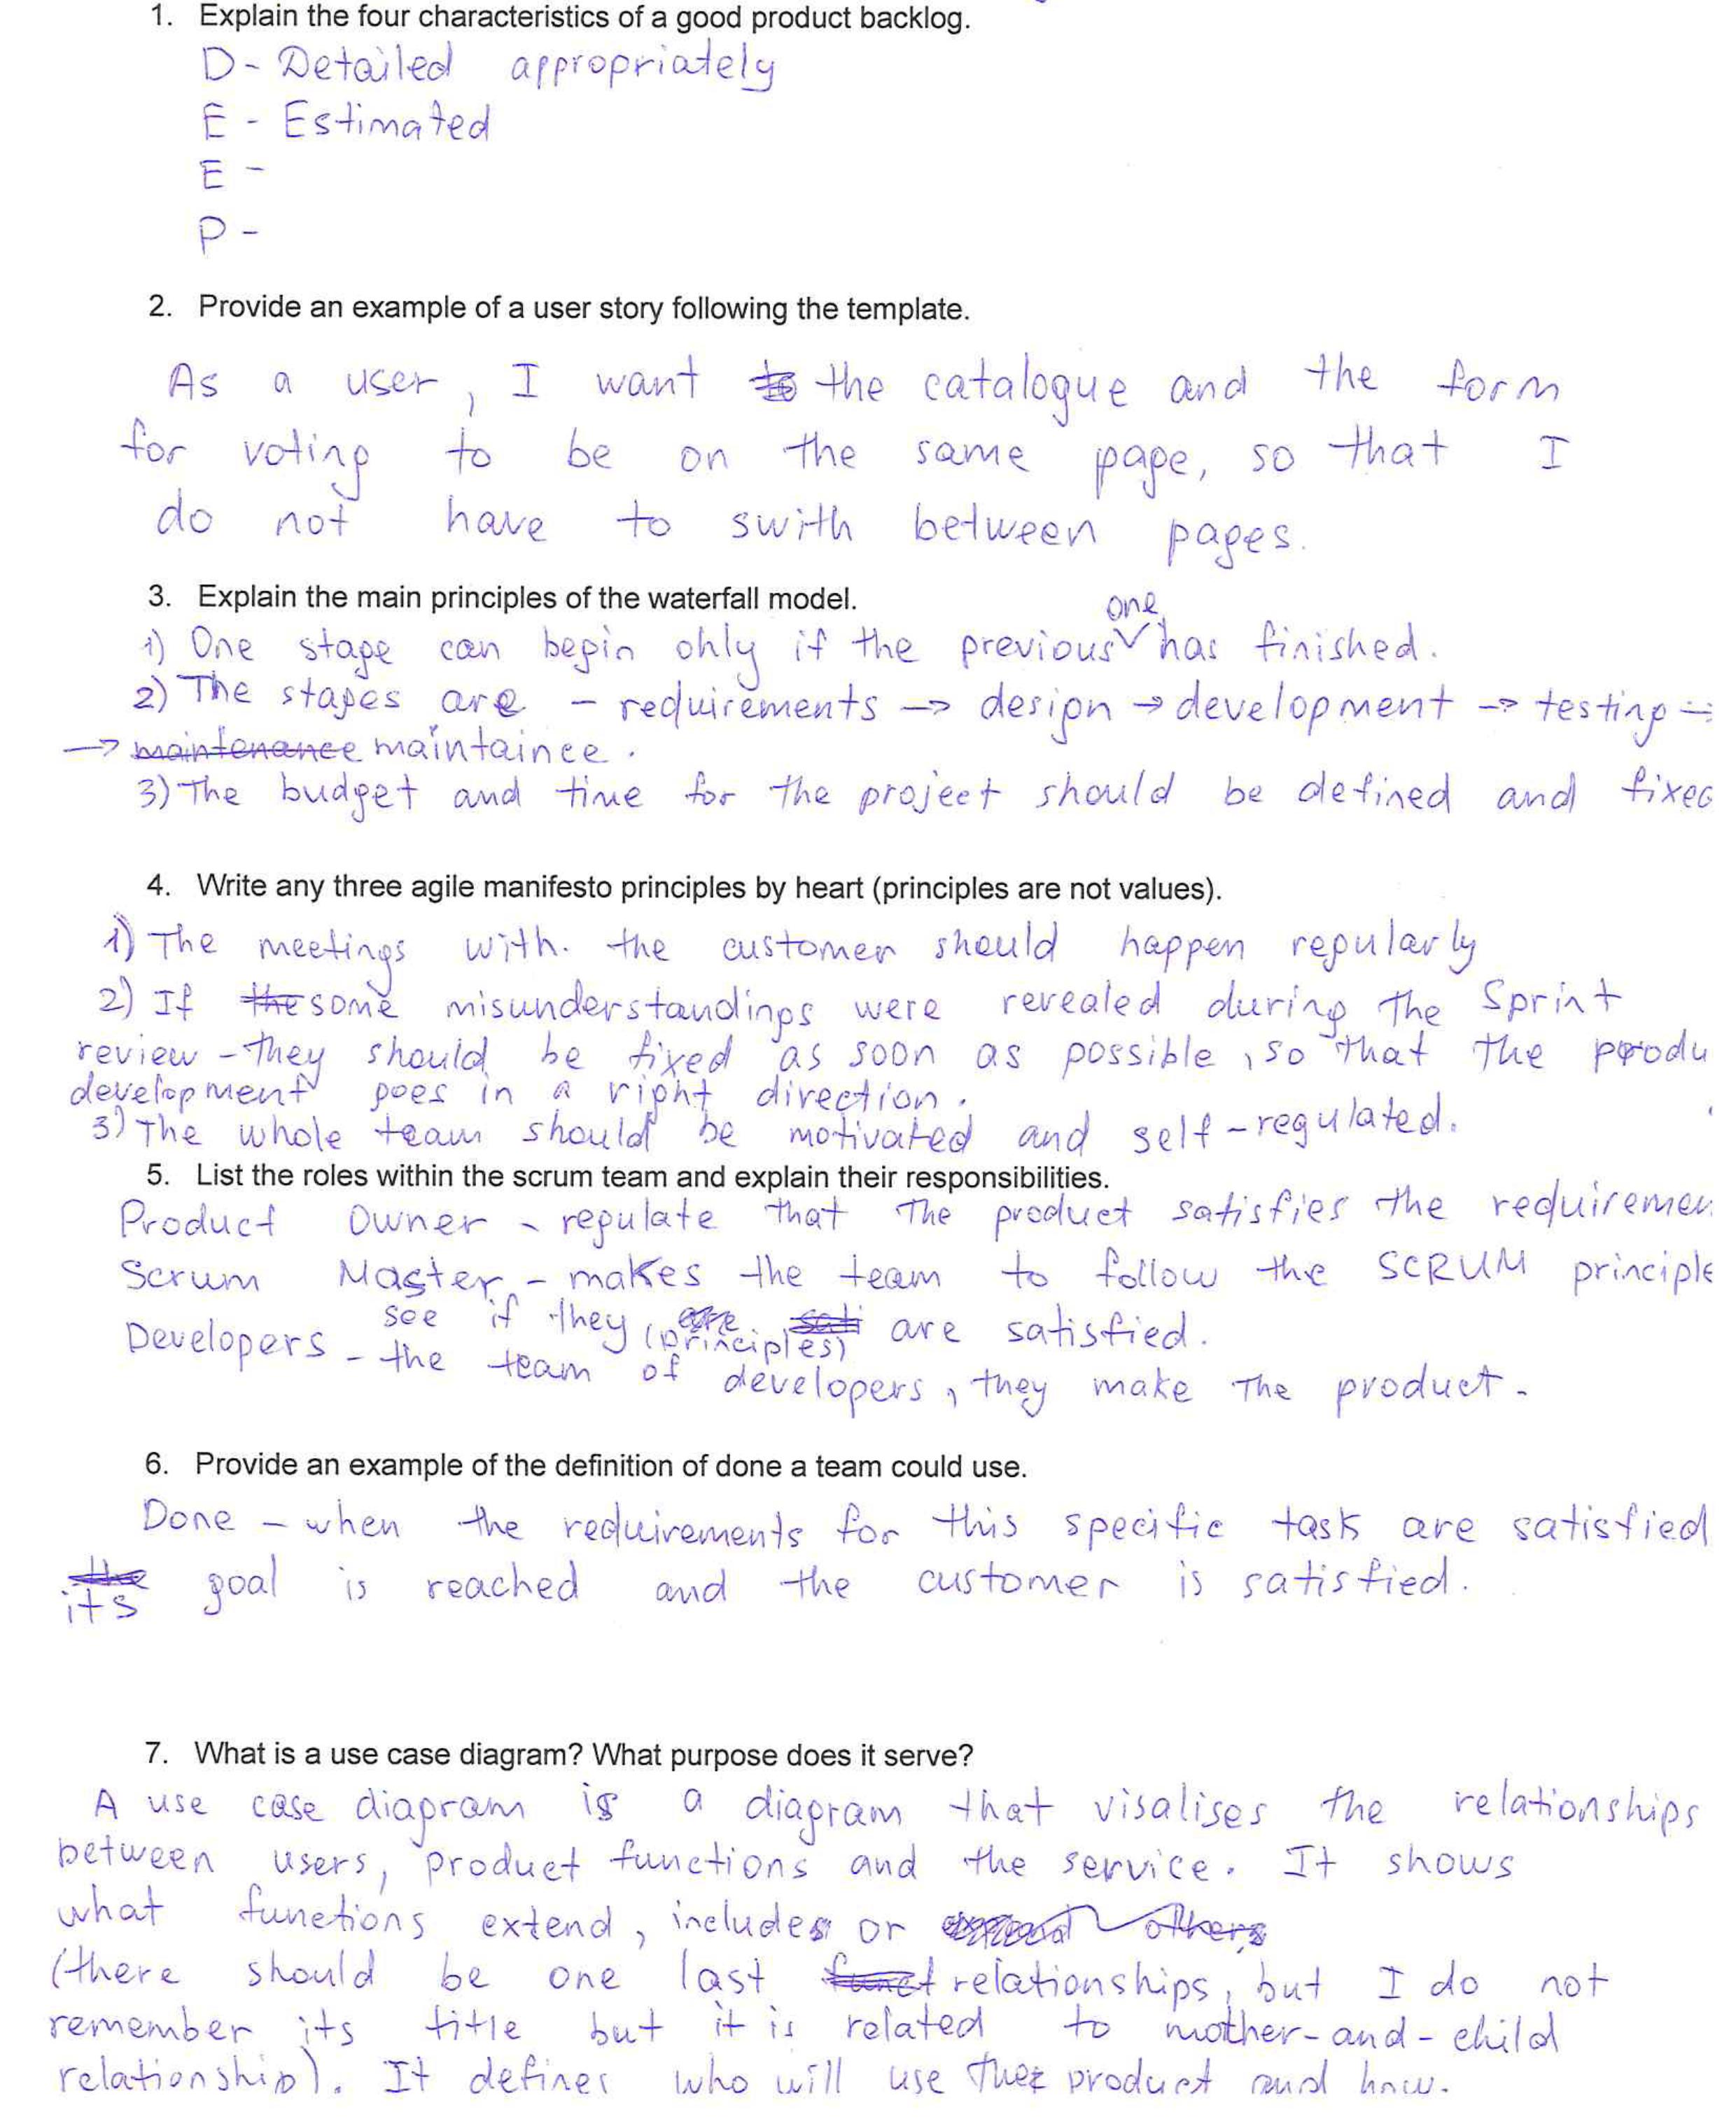 1. Explain the four characteristics of a good product backlog.
D - Detailed appropriately
E - Estimated
E -
P -
2. Provide an example of a user story following the template.
As a user, I want to the catalogue and the form
for voting to be on the same page, so that I
do not have to swith between pages.
3. Explain the main principles of the waterfall model.
one
1) One stage can begin only if the previous has finished.
2) The stages are - requirements -> design -> development -> testing -
-> maintenance maintainee.
3) The budget and time for the project should be defined and fixed
4. Write any three agile manifesto principles by heart (principles are not values).
1) The meetings with the customer should happen regularly
2) If the some misunderstandings were revealed during the Sprint
review - they should be fixed as soon as possible, so that the produ
development goes in a right direction.
3) The whole team should be motivated and self-regulated.
5. List the roles within the scrum team and explain their responsibilities.
Product Owner - regulate that the product satisfies the requiremen
Scrum Master - makes the team to follow the SCRUM principle
see if they are (principles) sati are satisfied.
Developers - the team of developers, they make the product.
6. Provide an example of the definition of done a team could use.
Done - when the requirements for this specific task are satisfied
the its goal is reached and the customer is satisfied.
7. What is a use case diagram? What purpose does it serve?
A use case diagram is a diagram that visalises the relationships
between users, product functions and the service. It shows
what functions extend, includes or others
(there should be one last funct relationships, but I do not
remember its title but it is related to mother-and-child
relationship). It defines who will use the product and how.